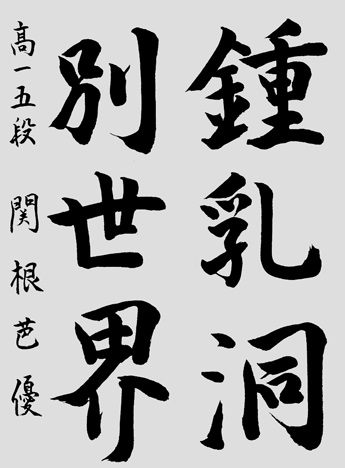 鍾乳洞
別世界
高一五段 関根芭優